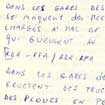 DANS LES GARES, DES
SE MOQUENT DES MEC
CHARGÉS À MAL DE
QUI GUEULENT AU
RER - RPA / RER RPA
DANS LES GARES DE
ÉRUCTENT DES TRUC
DES PLOUCS EN